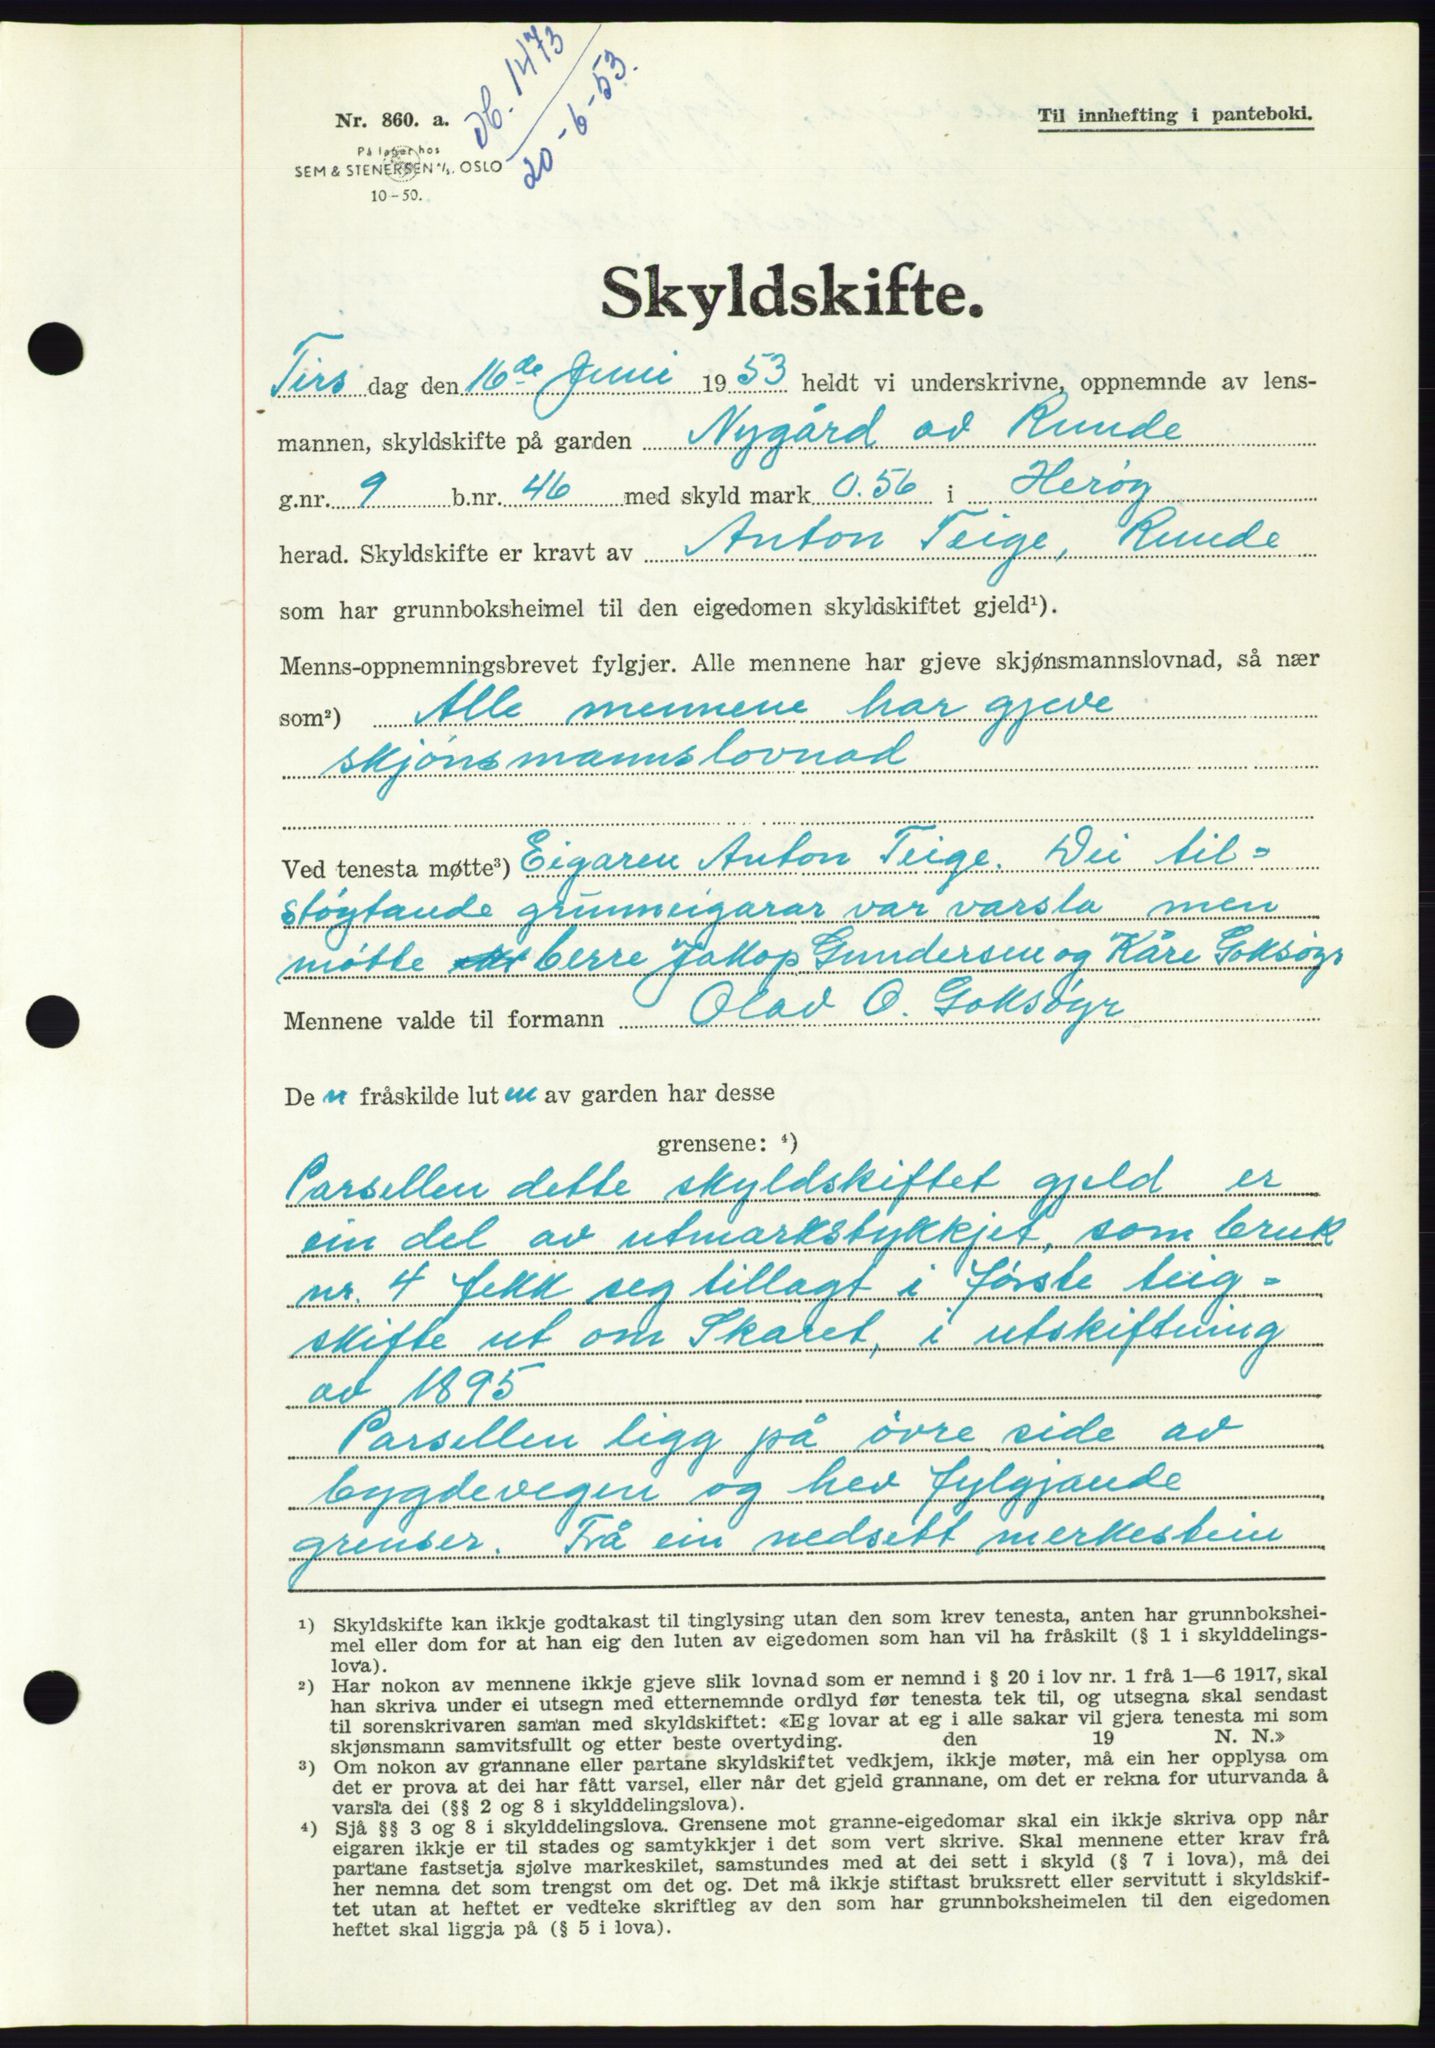 Db. 1473
20-6-53.
Nr. 860. a.
Til innhefting i panteboki.
På lager hos
SEM & STENERSEN A/S. OSLO
10-50.
Skyldskifte.
Tirs dag den 16de Juni 1953 heldt vi underskrivne, oppnemnde av lens-
mannen, skyldskifte på garden Nygård av Runde
g.nr. 9 b.nr. 46 med skyld mark 0.56 i Herøy
herad. Skyldskifte er kravt av Anton Teige, Runde
som har grunnboksheimel til den eigedomen skyldskiftet gjeld¹).
Menns-oppnemningsbrevet fylgjer. Alle mennene har gjeve skjønsmannslovnad, så nær
som²) Alle mennene har gjeve
skjønsmannslovnad
Ved tenesta møtte³) Eigaren Anton Teige. Dei til=
støytande grunneigarar var varsla men
møtte berre Jakop Gundersen og Kåre Goksøyr
Mennene valde til formann Olav O. Goksøyr
De n fråskilde lut en av garden har desse
grensene: ⁴)
Parsellen dette skyldskiftet gjeld er
ein del av utmarkstykkjet, som bruk
nr. 4 fekk seg tillagt i første teig=
skifte ut om Skaret, i utskiftning
av 1895
Parsellen ligg på øvre side av
bygdevegen og hev fylgjande
grenser. Frå ein nedsett merkestein
¹) Skyldskifte kan ikkje godtakast til tinglysing utan den som krev tenesta, anten har grunnbokshei-
mel eller dom for at han eig den luten av eigedomen som han vil ha fråskilt (§ 1 i skylddelings-
lova).
²) Har nokon av mennene ikkje gjeve slik lovnad som er nemnd i § 20 i lov nr. 1 frå 1—6 1917, skal
han skriva under ei utsegn med etternemnde ordlyd før tenesta tek til, og utsegna skal sendast
til sorenskrivaren saman med skyldskiftet: «Eg lovar at eg i alle sakar vil gjera tenesta mi som
skjønsmann samvitsfullt og etter beste overtyding. den 19 N. N.»
³) Om nokon av grannane eller partane skyldskiftet vedkjem, ikkje møter, må ein her opplysa om
det er prova at dei har fått varsel, eller når det gjeld grannane, om det er rekna for uturvanda å
varsla dei (§§ 2 og 8 i skylddelingslova).
⁴) Sjå §§ 3 og 8 i skylddelingslova. Grensene mot granne-eigedomar skal ein ikkje skriva opp når
eigaren ikkje er til stades og samtykkjer i det som vert skrive. Skal mennene etter krav frå
partane fastsetja sjølve markeskilet, samstundes med at dei sett i skyld (§ 7 i lova), må dei
her nemna det som trengst om det og. Det må ikkje stiftast bruksrett eller servitutt i skyldskif-
tet utan at heftet er vedteke skriftleg av den som har grunnboksheimelen til den eigedomen
heftet skal liggja på (§ 5 i lova).